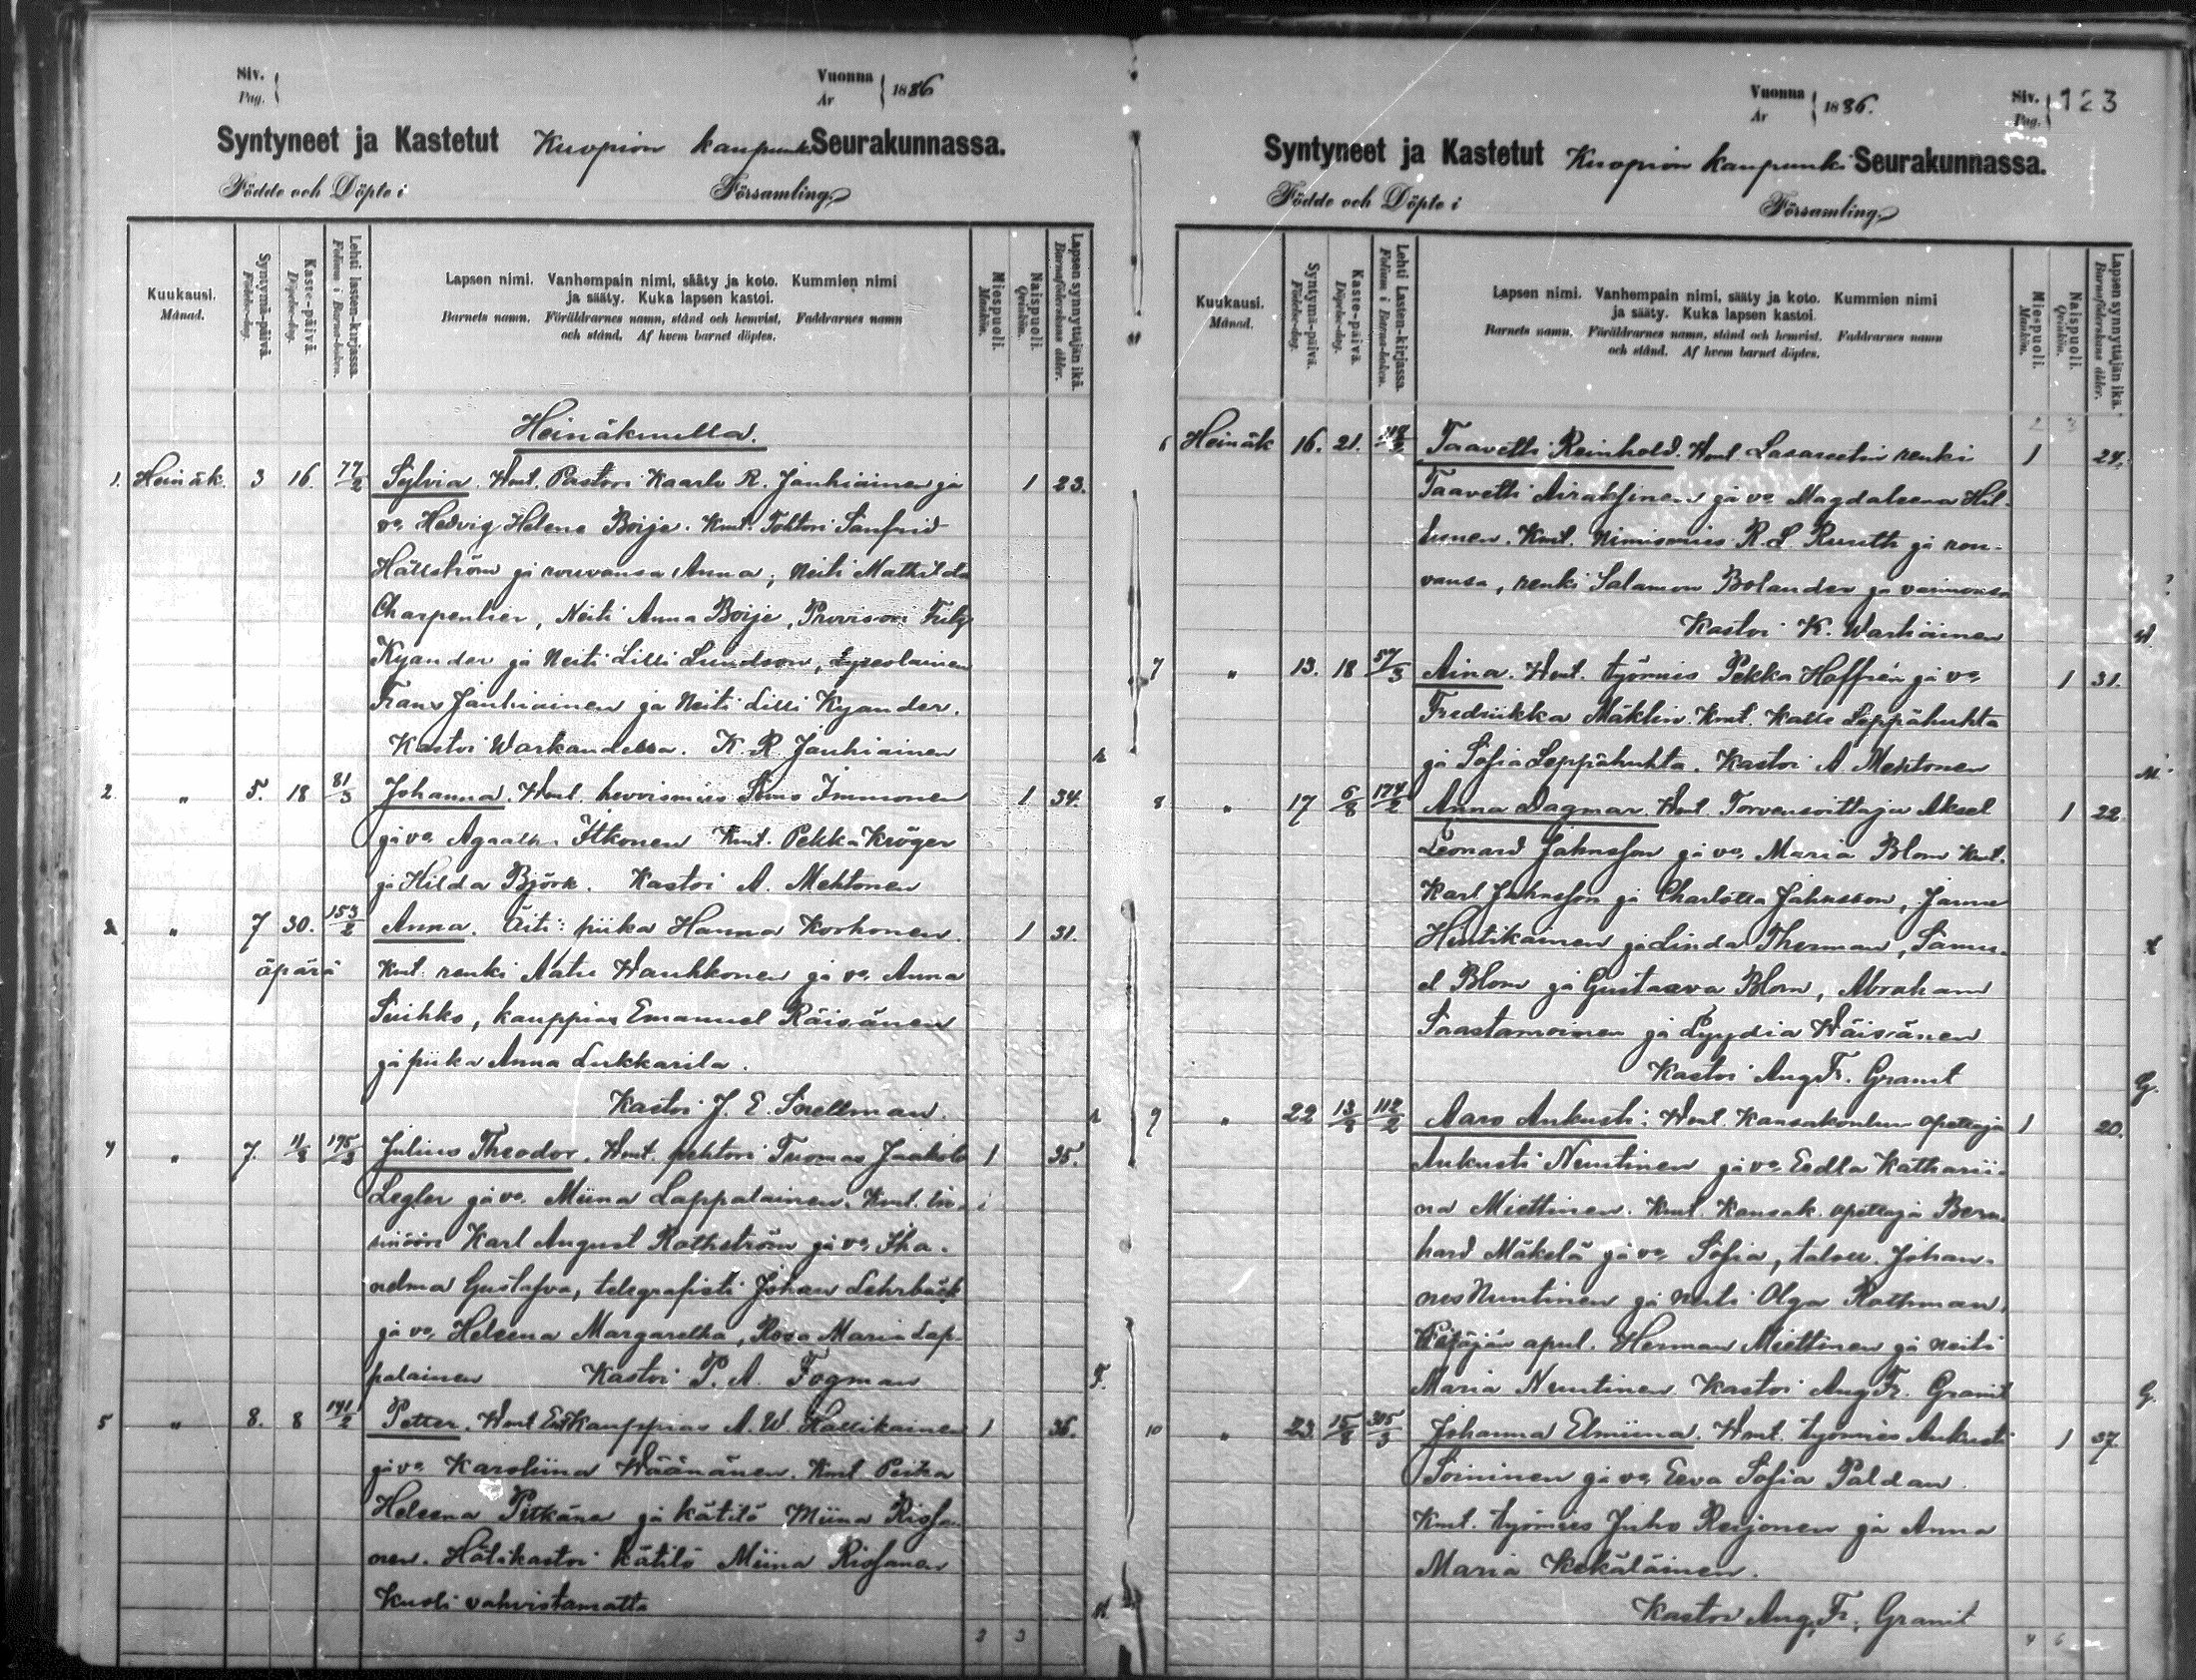 Siv.
Pag.
Vuonna
År
1886
Syntyneet ja Kastetut Kuopion kaupunki Seurakunnassa.
Födde och Döpte i
Församling.
Kuukausi.
Månad.
Syntymä-päivä.
Födelse-dag.
Kaste-päivä.
Döpelse-dag.
Lehti lasten-kirjassa.
Folium i Barna-boken.
Lapsen nimi. Vanhempain nimi, sääty ja koto. Kummien nimi
ja sääty. Kuka lapsen kastoi.
Barnets namn. Föräldrarnes namn, stånd och hemvist. Faddrarnes namn
och stånd. Af hvem barnet döptes.
Miespuoli.
Mankön.
Naispuoli.
Qvinkön.
Lapsen synnyttäjän ikä.
Barnaföderskans ålder.
Heinäkuulla.
1. Heinäk. 3 16. 77/2 Sylvia. Wmt. Pastori Kaarlo R. Jauhiainen ja 1 23.
vo. Hedvig Helena Boije. Kmt. Tohtori Sanfrid
Hällström ja rouvansa Anna, Neiti Mathilda
Charpentier, Neiti Anna Boije, Provisori Fritz
Kyander ja Neiti Lilli Lundson, Lyseolainen
Frans Jauhiainen ja Neiti Lilli Kyander.
Kastoi Warkaudessa. K. R. Jauhiainen
2. " 5. 18 81/3 Johanna. Wmt. hevoismies Simo Immonen 1 34.
ja vo. Agaatha Itkonen Kmt. Pekka Kröger
ja Hilda Björk. Kastoi A. Mehtonen
3. " 7 30. 153/2 Anna. Äiti: piika Hanna Korhonen. 1 31.
äpärä Kmt. renki Aatu Wauhkonen ja vo. Anna
Suihko, kauppias Emanuel Räisänen
ja piika Anna Lukkarila.
Kastoi J. E. Snellman.
4 " 7. 11/8 195/3 Julius Theodor. Wmt. pehtori Tuomas Jaakob 1 35.
Legler ja vo. Miina Lappalainen. Kmt. in-
sinööri Karl August Rothström ja vo.
Gustafva, telegrafisti Johan Lehrbäck
ja vo. Heleena Margaretha, Rosa Maria Lap-
palainen Kastoi P. A. Fogman F.
5 " 8. 8 191/2 Petter. Wmt. Ent. kauppias A. W. Hallikainen 1 36.
ja vo. Karoliina Wäänänen. Kmt. Piika
Heleena Pitkänen ja kätilö Miina Rissa-
nen. Hätikastoi kätilö Miina Rissanen
Kuoli vahvistamatta
3 3
Vuonna
År
1886.
Siv.
Pag.
123
Syntyneet ja Kastetut Kuopion kaupunki Seurakunnassa.
Födde och Döpte i
Församling.
Kuukausi.
Månad.
Syntymä-päivä.
Födelse-dag.
Kaste-päivä.
Döpelse-dag.
Lehti Lasten-kirjassa.
Folium i Barna-boken.
Lapsen nimi. Vanhempain nimi, sääty ja koto. Kummien nimi
ja sääty. Kuka lapsen kastoi.
Barnets namn. Föräldrarnes namn, stånd och hemvist. Faddrarnes namn
och stånd. Af hvem barnet döptes.
Miespuoli.
Mankön.
Naispuoli.
Qvinkön.
Lapsen synnyttäjän ikä.
Barnaföderskans ålder.
2 3
6 Heinäk 16. 21. Taavetti Reinhold. Wmt. Lasaretin renki 1 24.
Taavetti Airaksinen ja vo. Magdaleena Hil-
tunen. Kmt. Nimismies R. L. Ruuth ja rou-
vansa, renki Salamon Bolander ja vaimonsa
Kastoi K. Wartiainen
7 " 13. 18 57/3 Aina. Wmt. työmies Pekka Hoffrén ja vo. 1 31.
Fredriikka Mäklin. Kmt. Kalle Leppähuhta
ja Sofia Leppähuhta. Kastoi A. Mehtonen M.
8 " 17 6/8 174/2 Anna Dagmar. Wmt. Torvensoittaja Aksel 1 22
Leonard Johnsson ja vo. Maria Blom Kmt.
Karl Johnsson ja Charlotta Johnsson, Janne
Huttikainen ja Linda Therman, Samu-
el Blom ja Gustaava Blom, Abraham
Saastamoinen ja Lyydia Wäisänen
Kastoi Aug. Fr. Granit G.
9 " 22 13/8 112/2 Aaro Aukusti: Wmt. Kansakoulun opettaja 1 20.
Aukusti Nuutinen ja vo. Eedla Katharii-
na Miettinen. Kmt. Kansak. opettaja Bern-
hard Mäkelä ja vo. Sofia, talon. Johan-
nes Nuutinen ja neiti Olga Rothman,
apul. Herman Miettinen ja neiti
Maria Nuutinen Kastoi Aug. Fr. Granit G.
10 " 23. 15/8 305/3 Johanna Elmiina. Wmt. työmies Aukusti 1 37.
Soininen ja vo. Eeva Sofia Paldan.
Kmt. työmies Juho Reijonen ja Anna
Maria Kekäläinen.
Kastoi Aug. Fr. Granit
4 6